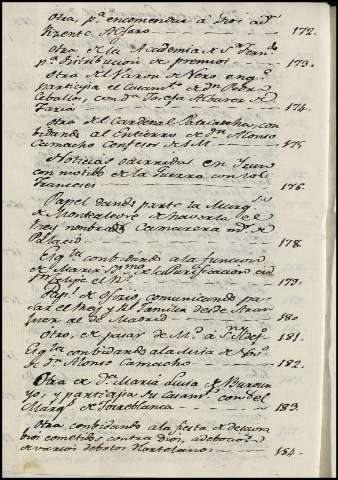 Otra, pª encomendar á Dios ad.ⁿ
Vizente Alfaro 172.
Otra de la Academia de Sⁿ Fern.do
pª Distribución de premios 173.
Otra del Varon de Nero en q.e
participa el Casam.to de d.ⁿ Pedro
Ceballos, con D.ª Josefa Alvarez de
Faria 174.
Otro del Cardenal Patriarcha, con
bidando al Entierro de d.ⁿ Alonso
Camacho Confesor de S.M 175
Noticias ocurridas en Irun
con motibo de la Guerra con los
Franceses 176.
Papel dando parte la Marq.sa
de Montealegre de haverla el
Rey nombrado Camarera m.r de
Palacio 178.
Esq.la conbidando a la funcion
de Maria SS.ma de la Purificacion en
Sⁿ Felipe el R.l 179.
Pap.l de oficio, comunicando pa-
sar el Rey y Rl Familia desde Aran
juez al de Madrid 180
Otro, de pasar de M.d á Sⁿ Yldef.o 181.
Esq.la conbidando a la Misa de
de dⁿ Alonso Camacho 182.
Otra de D.ª Maria Luisa de
yo, y participa su Casam.to con el
Marq.s de Torreblanca 183.
Otra conbidando a la fiesta de desagra
bios cometidos contra Dios, a debocion
de varios debotos Hortelanos 184.